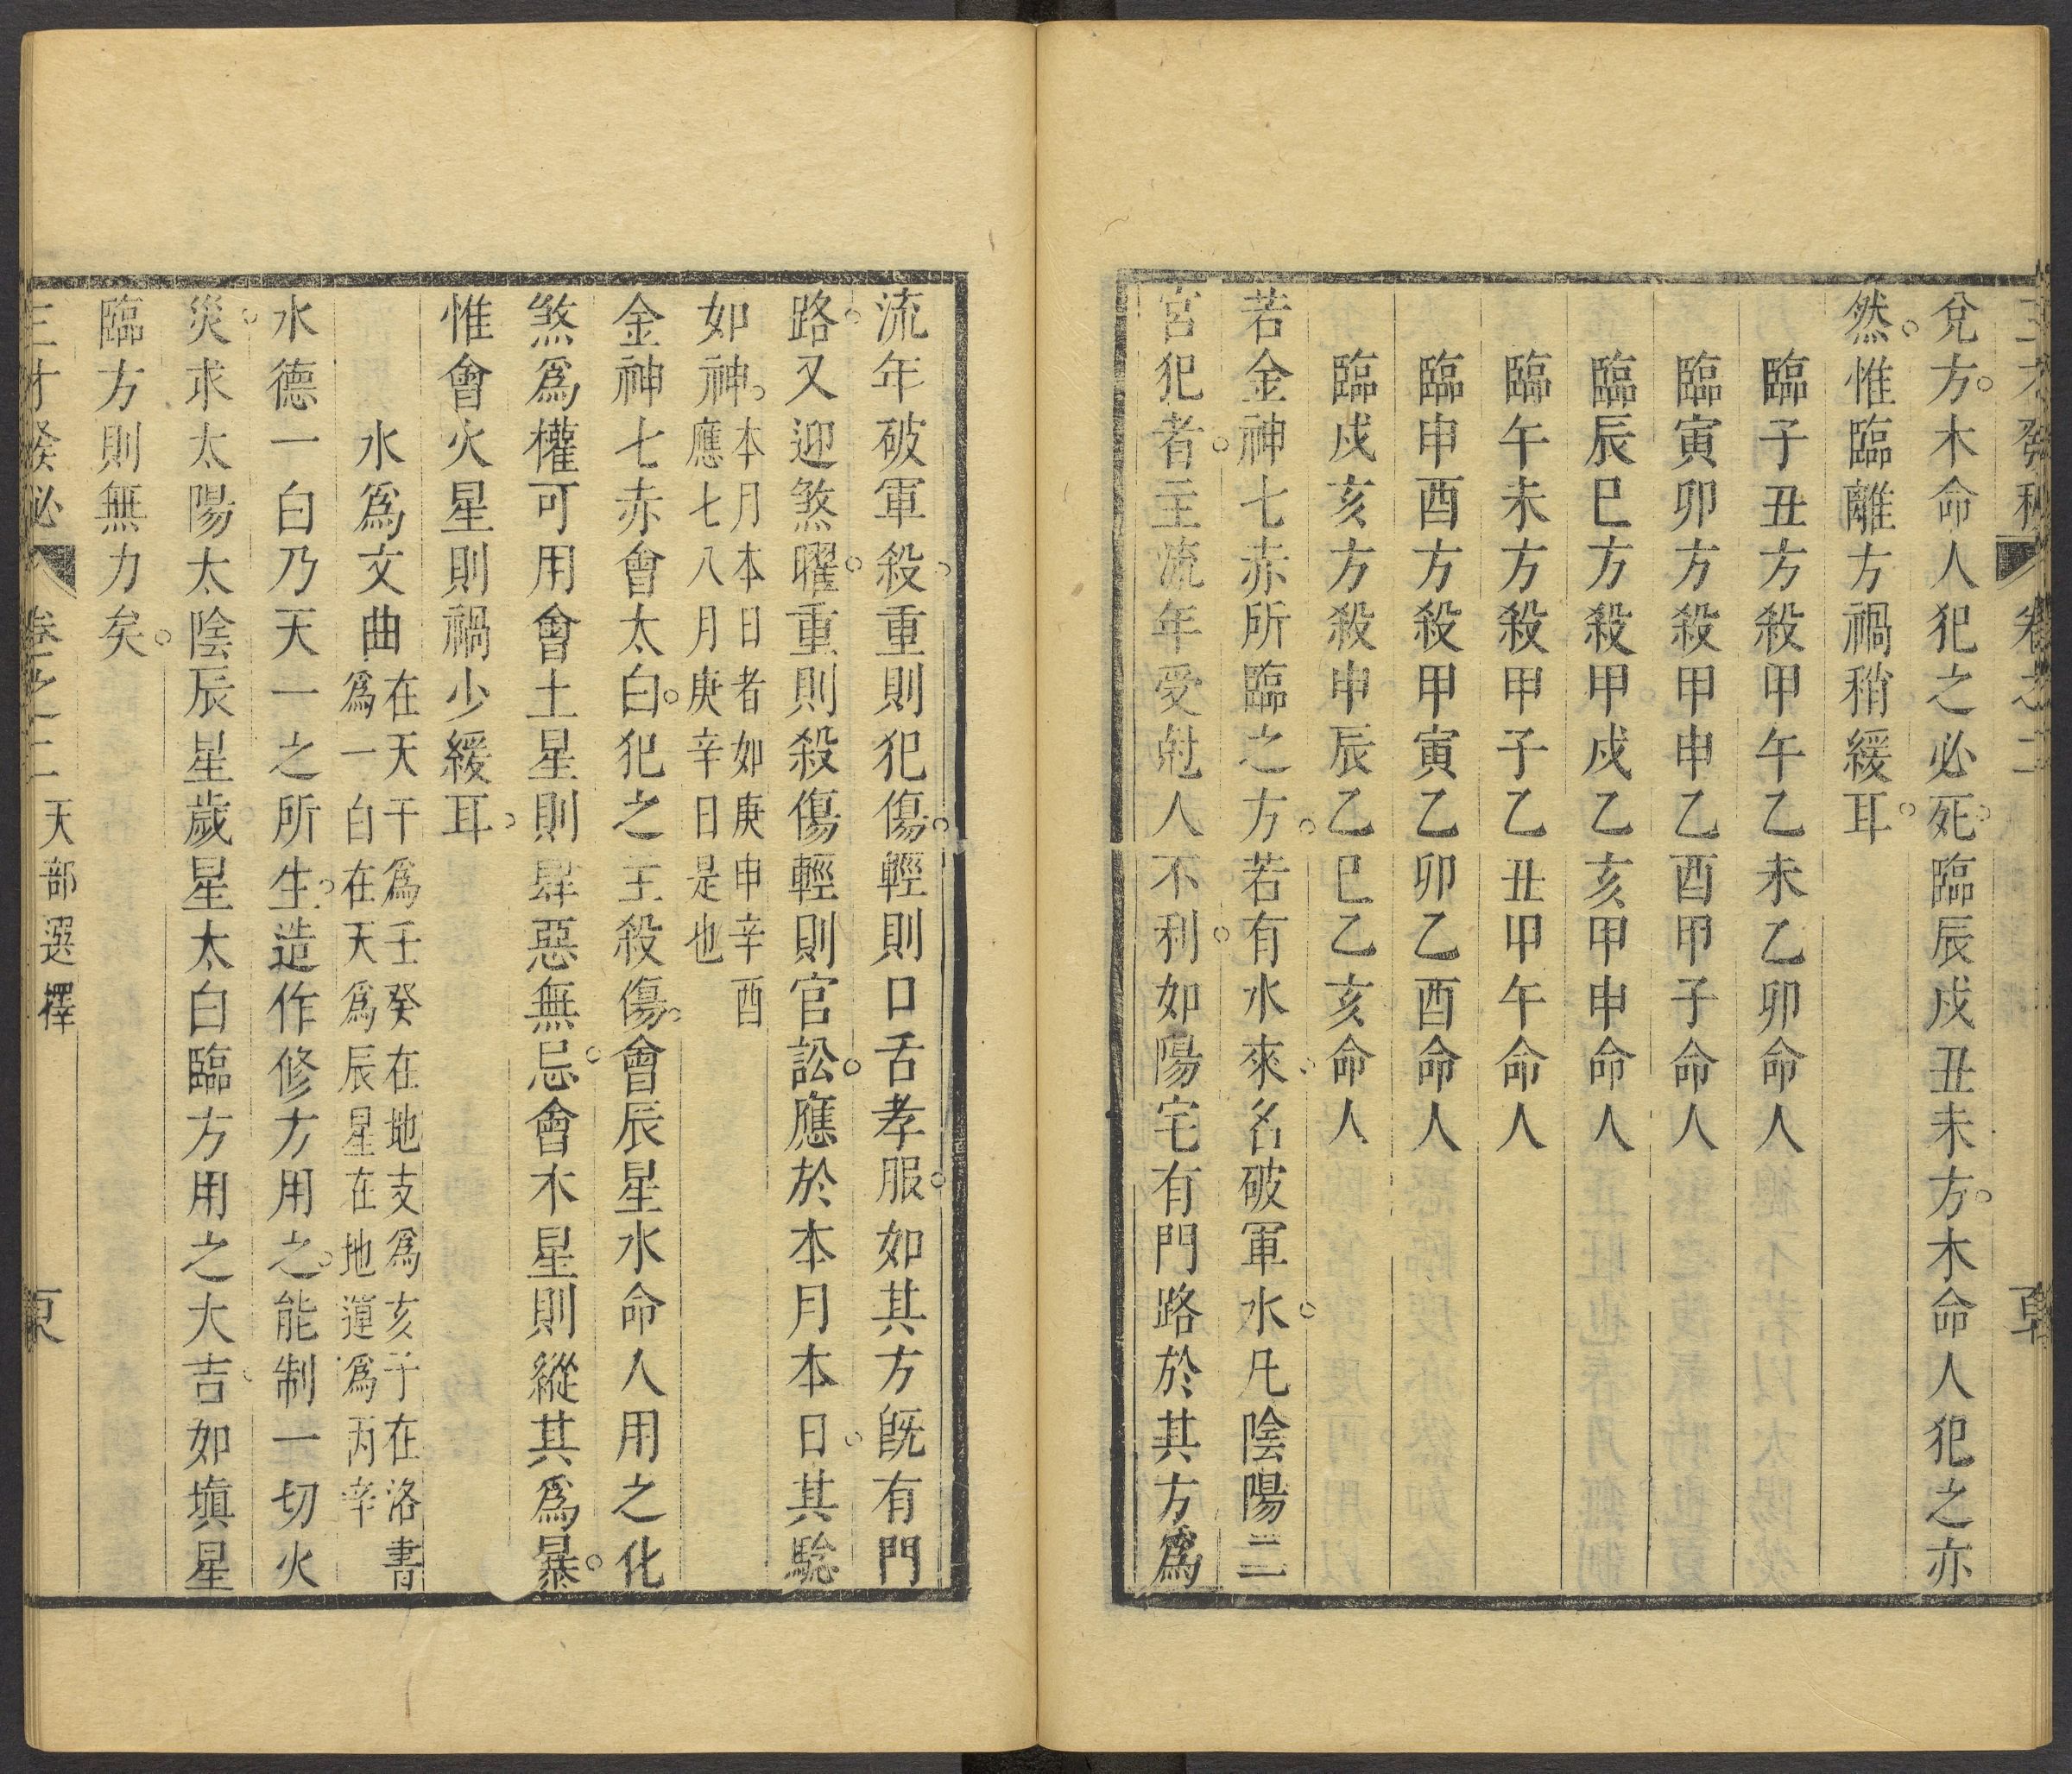 三才發秘 卷之二
兌方木命人犯之必死臨辰戌丑未方木命人犯之亦
然惟臨離方禍稍緩耳
臨子丑方殺甲午乙未乙卯命人
臨寅卯方殺甲申乙酉甲子命人
臨辰巳方殺甲戌乙亥甲申命人
臨午未方殺甲子乙丑甲午命人
臨申酉方殺甲寅乙卯乙酉命人
臨戌亥方殺甲辰乙巳乙亥命人
若金神七赤所臨之方若有水來名破軍水凡陰陽二
宮犯者主流年受尅人不利如陽宅有門路於其方爲
流年破軍殺重則犯傷輕則口舌孝服如其方旣有門
路又迎煞曜重則殺傷輕則官訟應於本月本日其驗
如神本月本日者如庚申辛酉
應七八月庚辛日是也
金神七赤會太白犯之主殺傷會辰星水命人用之化
煞爲權可用會土星則肆惡無忌會木星則縱其爲暴
惟會火星則禍少緩耳
水爲文曲在天干爲壬癸在地支爲亥子在洛書
爲一白在天爲辰星在地運爲丙辛
水德一白乃天一之所生造作修方用之能制一切火
災求太陽太陰辰星歲星太白臨方用之大吉如塡星
臨方則無力矣
三才發秘 卷之二 天部選擇